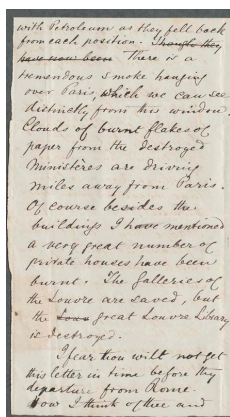 with Petroleum as they fell back
from each position. Though they
have now been There is a
tremendous smoke hanging
over Paris, which we can see
distinctly from this window.
Clouds of burnt flakes of
paper from the destroyed
Ministères are driving
miles away from Paris.
Of course besides the
buildings I have mentioned
a very great number of
private houses have been
burnt. The Galleries of
the Louvre are saved, but
the great Louvre Library
is destroyed.
I fear thou wilt not get
this letter in time before thy
departure from Rome.
How I think of thee and